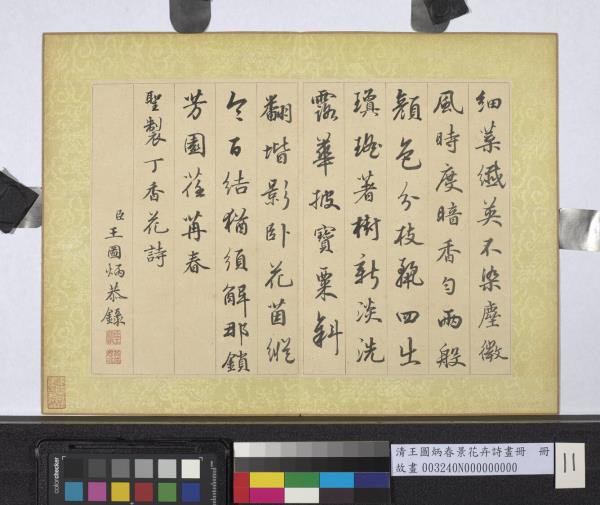 細葉纎英不染塵微
風時度暗香勻兩般
顏色分枝四出
瓊著樹新淡洗
露華披寶粟斜
翻堦影臥花茵縱
令百結猶須解那鎖
芳園荏苒春
聖製丁香花詩
臣王圖炳恭錄
清王圖炳春景花卉詩畫冊 冊
故畫 003240N000000000
11
colorchecker